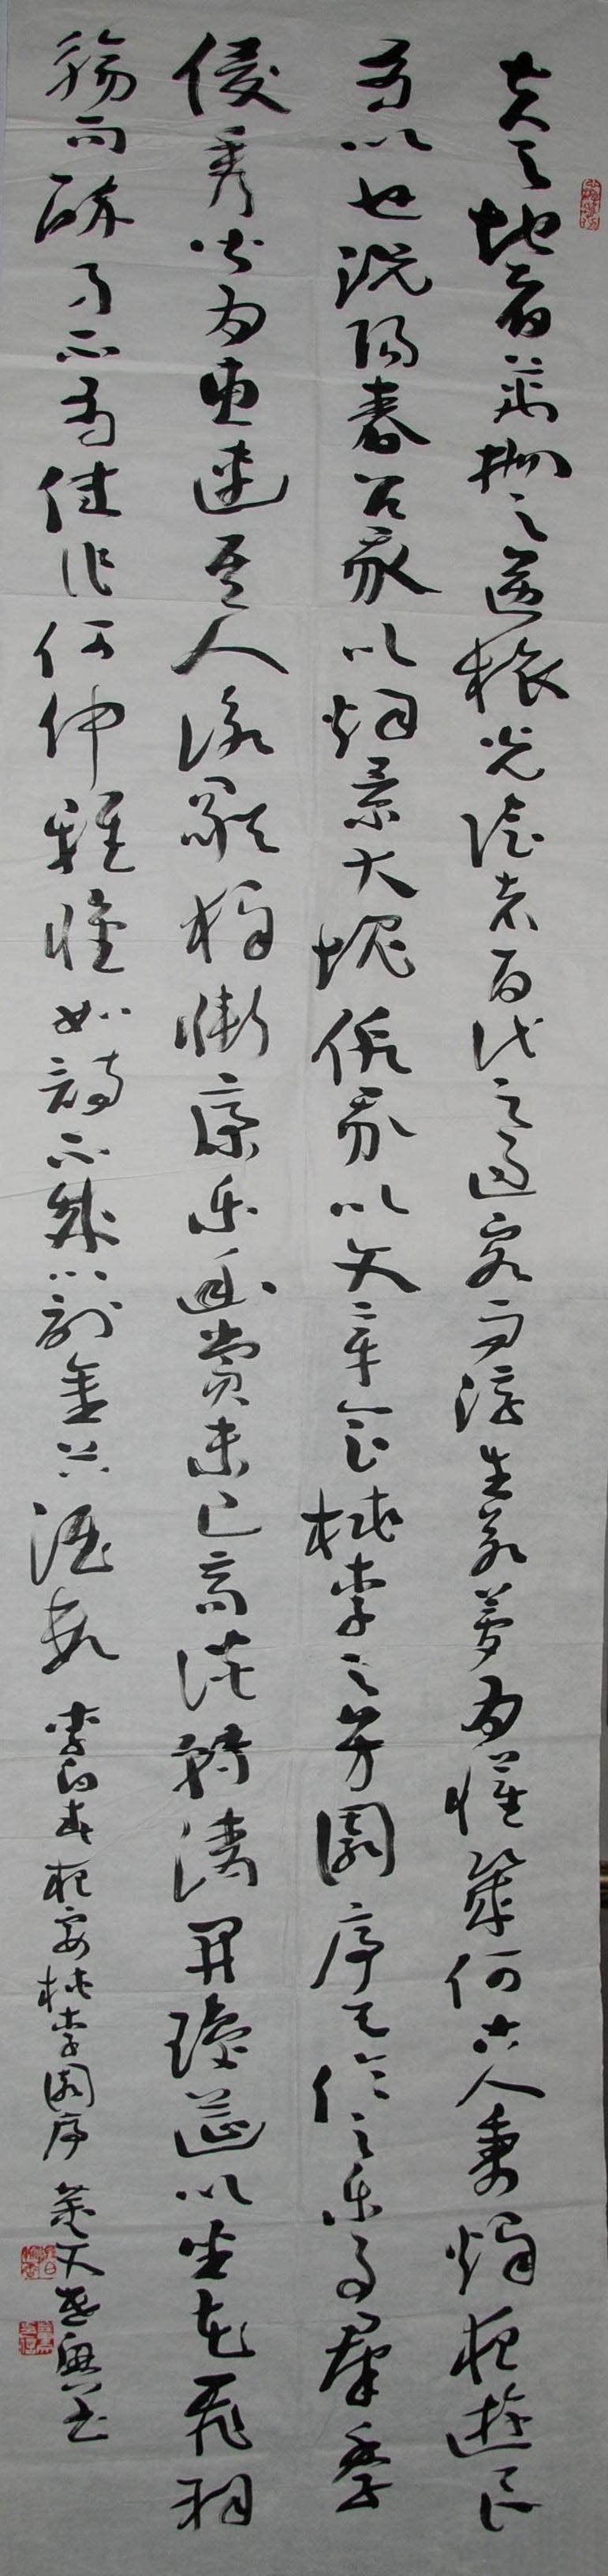 夫天地者萬物之逆旅光陰者百代之過客而浮生若夢為懽幾何古人秉燭夜遊良
有以也況陽春召我以烟景大塊假我以文章會桃李之芳園序天倫之樂事群季
俊秀皆為惠連吾人詠歌獨慚康樂幽賞未已高談轉清開瓊筵以坐花飛羽
觴而醉月不有佳作何伸雅懷如詩不成罰金谷酒數 李白春夜宴桃李園序 文興書